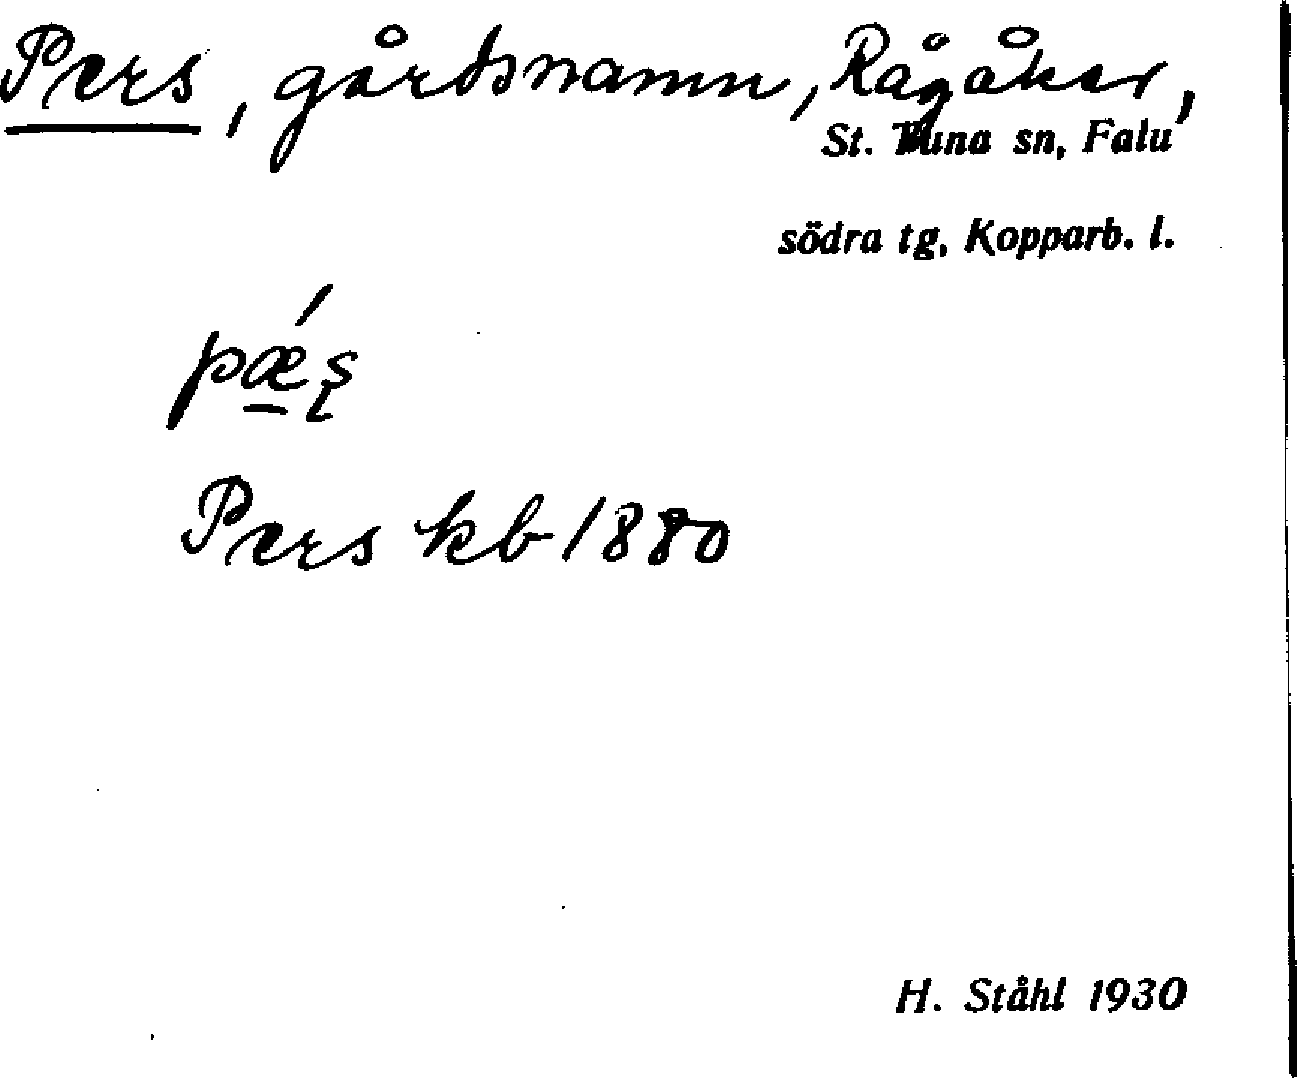 Pers, gårdsnamn, Rågåker,
St. Tuna sn, Falu
södra tg, Kopparb. l.
pǽ̲ʂ
Pers kb 1880
H. Ståhl 1930